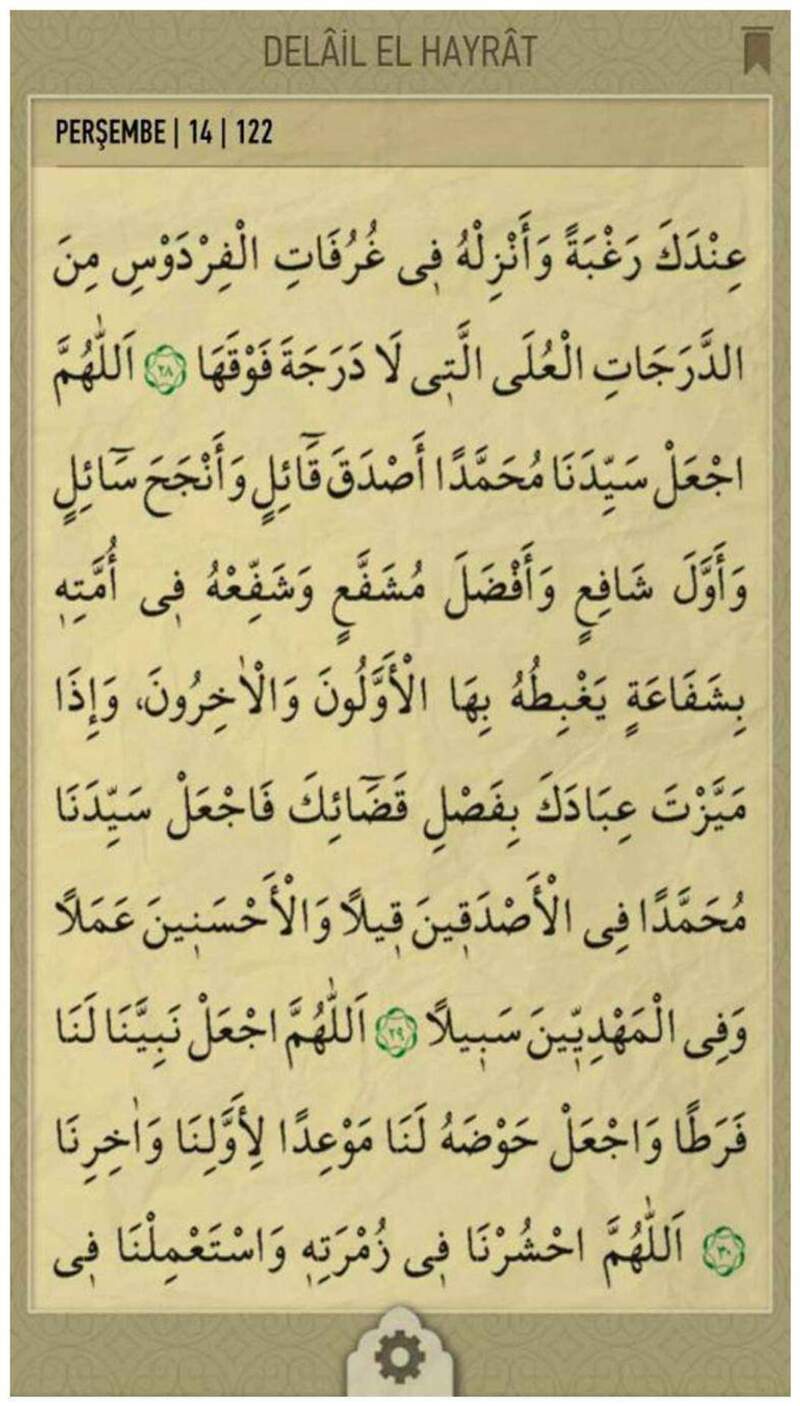 DELÂİL EL HAYRÂT
PERŞEMBE | 14 | 122
عِنْدَكَ رَغْبَةً وَأَنْزِلْهُ فِى غُرُفَاتِ الْفِرْدَوْسِ مِنَ
الدَّرَجَاتِ الْعُلَى الَّتِى لَا دَرَجَةَ فَوْقَهَا ٢٨ اَللّٰهُمَّ
اجْعَلْ سَيِّدَنَا مُحَمَّدًا أَصْدَقَ قَٓائِلٍ وَأَنْجَحَ سَٓائِلٍ
وَأَوَّلَ شَافِعٍ وَأَفْضَلَ مُشَفَّعٍ وَشَفِّعْهُ فِى أُمَّتِهٖ
بِشَفَاعَةٍ يَغْبِطُهُ بِهَا الْأَوَّلُونَ وَالْاٰخِرُونَ، وَإِذَا
مَيَّزْتَ عِبَادَكَ بِفَصْلِ قَضَٓائِكَ فَاجْعَلْ سَيِّدَنَا
مُحَمَّدًا فِى الْأَصْدَقٖينَ قٖيلًا وَالْأَحْسَنٖينَ عَمَلًا
وَفِى الْمَهْدِيّٖينَ سَبٖيلًا ٢٩ اَللّٰهُمَّ اجْعَلْ نَبِيَّنَا لَنَا
فَرَطًا وَاجْعَلْ حَوْضَهُ لَنَا مَوْعِدًا لِأَوَّلِنَا وَاٰخِرِنَا
٣٠ اَللّٰهُمَّ احْشُرْنَا فٖى زُمْرَتِهٖ وَاسْتَعْمِلْنَا فٖى